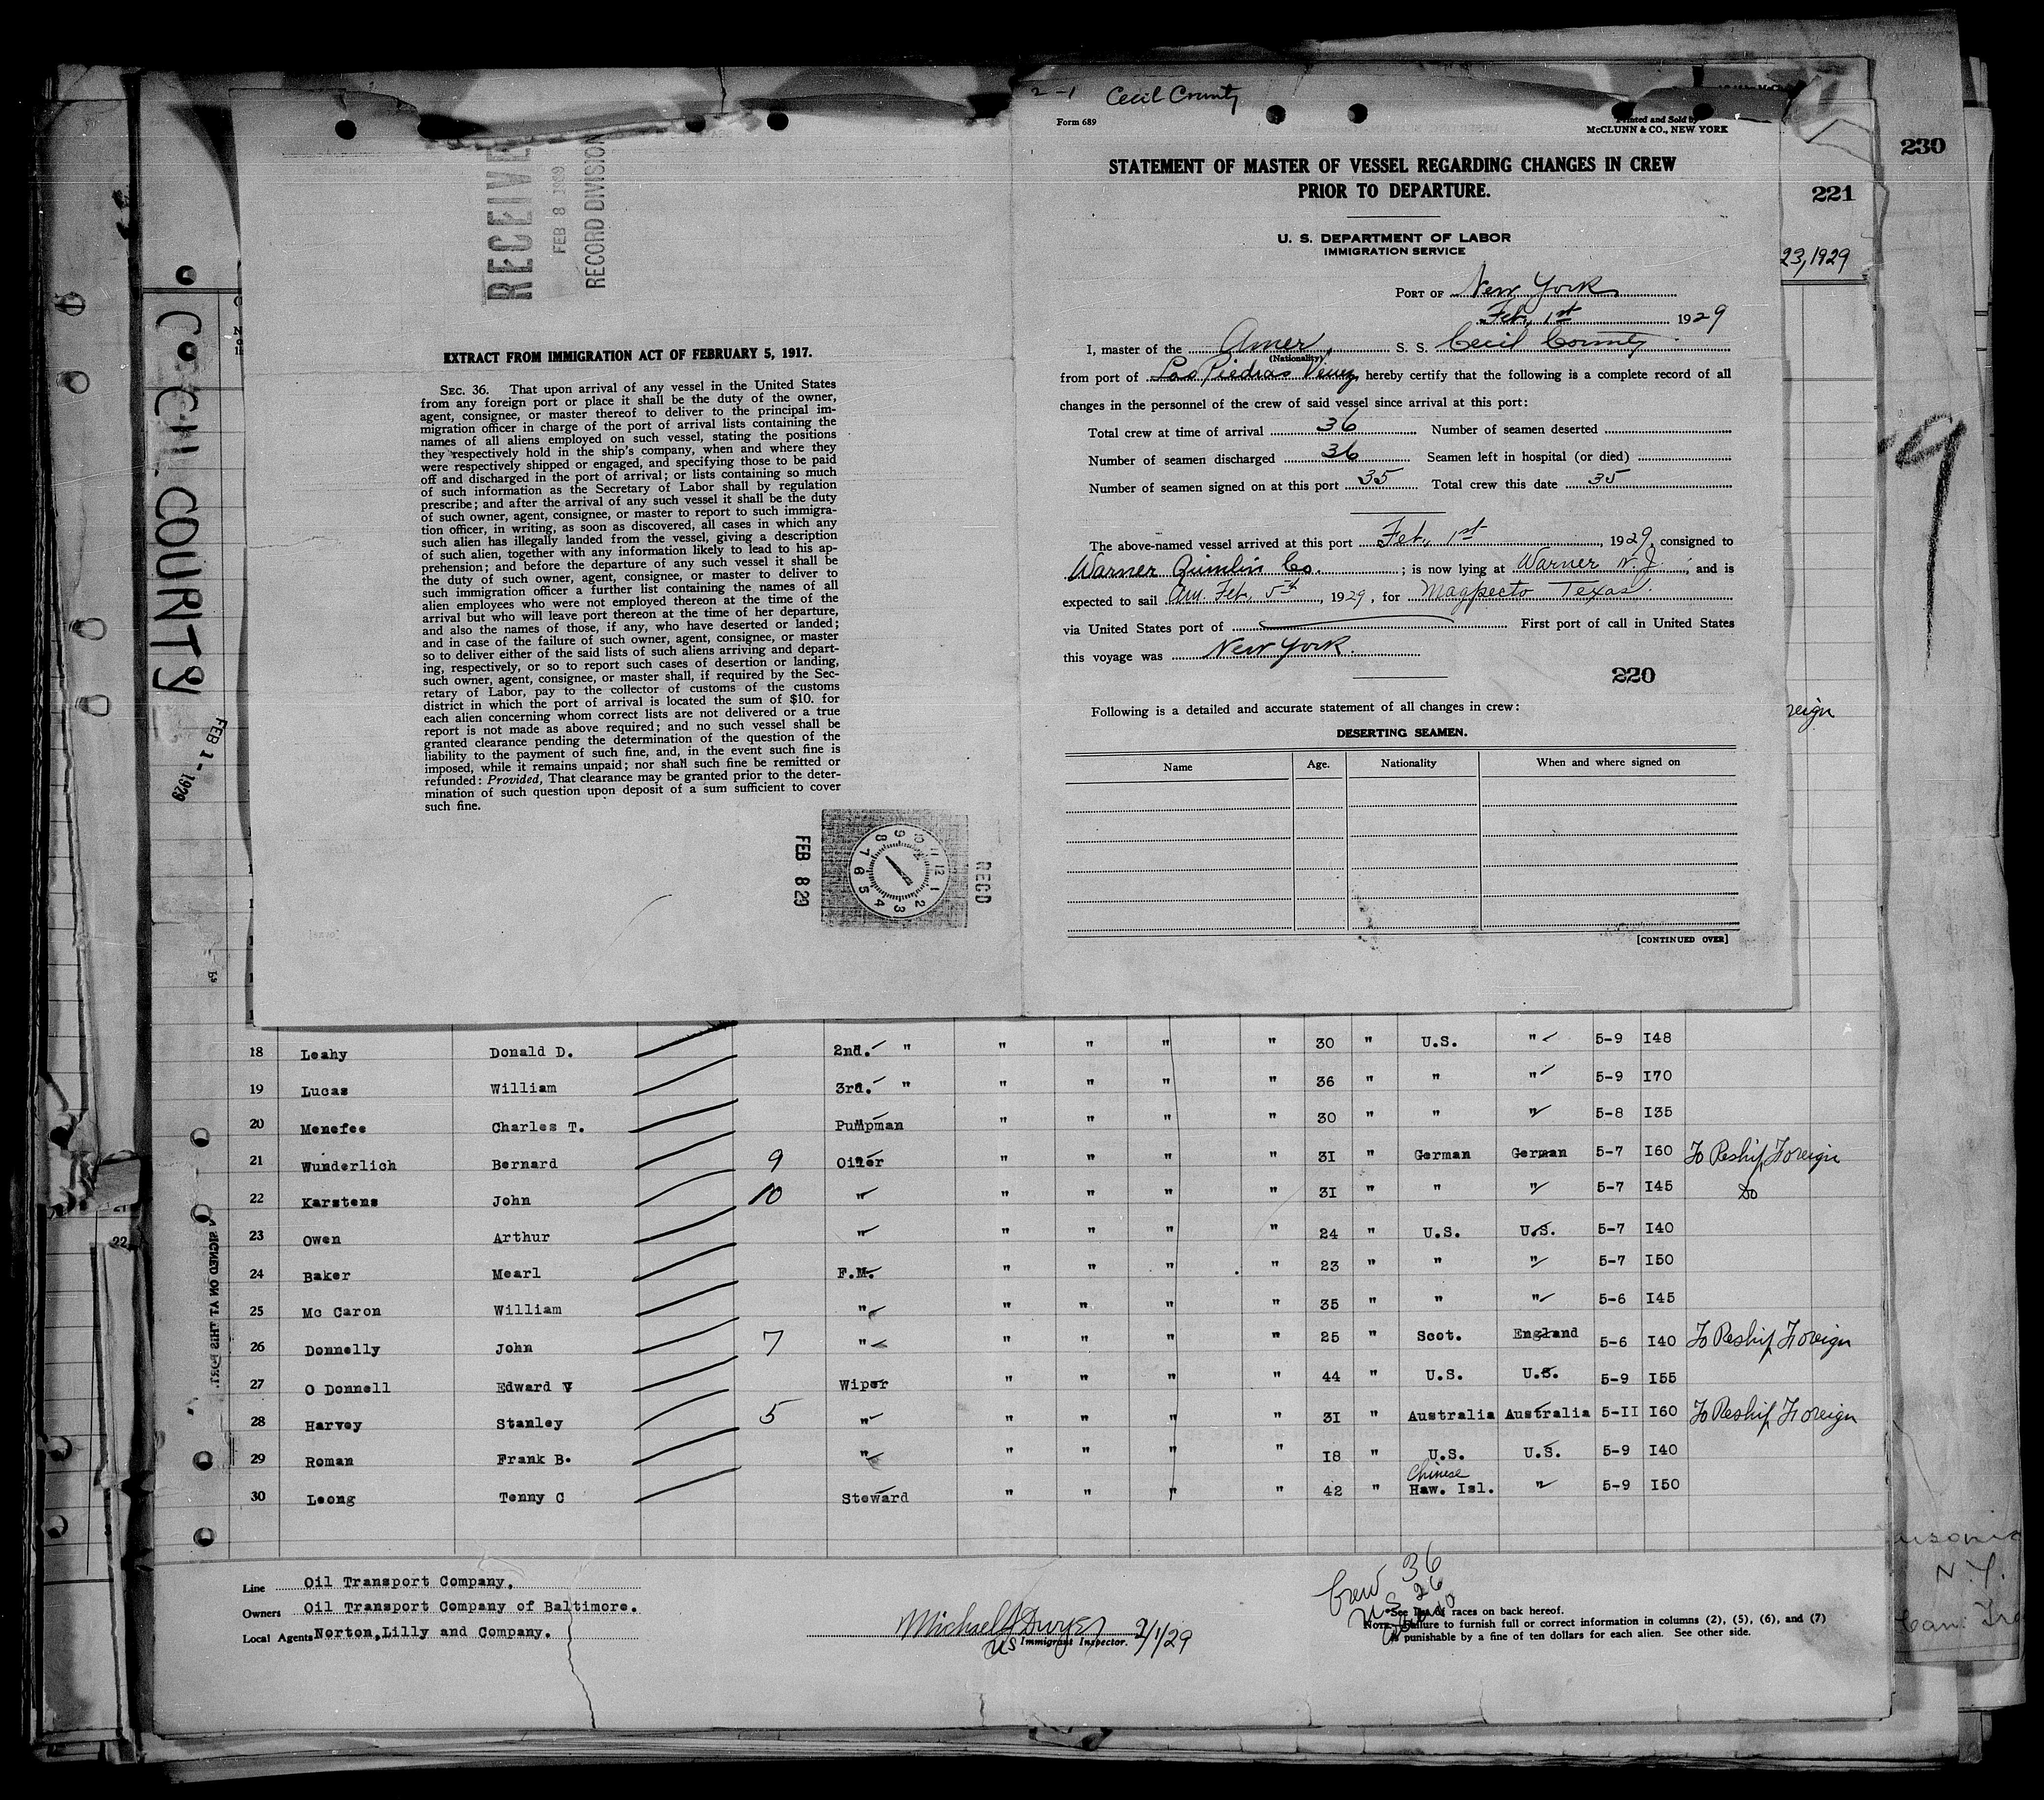 2-1 Cecil County
Form 689
Printed and Sold by
McCLUNN & CO., NEW YORK
STATEMENT OF MASTER OF VESSEL REGARDING CHANGES IN CREW
PRIOR TO DEPARTURE.
U. S. DEPARTMENT OF LABOR
IMMIGRATION SERVICE
PORT OF New York
Feb. 1st 1929
I, master of the Amer. S. S. Cecil County
(Nationality)
from port of Las Piedras Venez, hereby certify that the following is a complete record of all
changes in the personnel of the crew of said vessel since arrival at this port:
Total crew at time of arrival 36 Number of seamen deserted
Number of seamen discharged 36 Seamen left in hospital (or died)
Number of seamen signed on at this port 35 Total crew this date 35
The above-named vessel arrived at this port Feb. 1st, 1929, consigned to
Warner Quinlin Co. ; is now lying at Warner N.J., and is
expected to sail Feb. 5th, 1929, for Magpecto Texas.
via United States port of First port of call in United States
this voyage was New York.
220
Following is a detailed and accurate statement of all changes in crew:
DESERTING SEAMEN.
Name Age. Nationality When and where signed on
[CONTINUED OVER]
RECEIVE
FEB 8 1929
RECORD DIVISION
EXTRACT FROM IMMIGRATION ACT OF FEBRUARY 5, 1917.
SEC. 36. That upon arrival of any vessel in the United States
from any foreign port or place it shall be the duty of the owner,
agent, consignee, or master thereof to deliver to the principal im-
migration officer in charge of the port of arrival lists containing the
names of all aliens employed on such vessel, stating the positions
they respectively hold in the ship's company, when and where they
were respectively shipped or engaged, and specifying those to be paid
off and discharged in the port of arrival; or lists containing so much
of such information as the Secretary of Labor shall by regulation
prescribe; and after the arrival of any such vessel it shall be the duty
of such owner, agent, consignee, or master to report to such immigra-
tion officer, in writing, as soon as discovered, all cases in which any
such alien has illegally landed from the vessel, giving a description
of such alien, together with any information likely to lead to his ap-
prehension; and before the departure of any such vessel it shall be
the duty of such owner, agent, consignee, or master to deliver to
such immigration officer a further list containing the names of all
alien employees who were not employed thereon at the time of the
arrival but who will leave port thereon at the time of her departure,
and also the names of those, if any, who have deserted or landed;
and in case of the failure of such owner, agent, consignee, or master
so to deliver either of the said lists of such aliens arriving and depart-
ing, respectively, or so to report such cases of desertion or landing,
such owner, agent, consignee, or master shall, if required by the Sec-
retary of Labor, pay to the collector of customs of the customs
district in which the port of arrival is located the sum of $10. for
each alien concerning whom correct lists are not delivered or a true
report is not made as above required; and no such vessel shall be
granted clearance pending the determination of the question of the
liability to the payment of such fine, and, in the event such fine is
imposed, while it remains unpaid; nor shall such fine be remitted or
refunded: Provided, That clearance may be granted prior to the deter-
mination of such question upon deposit of a sum sufficient to cover
such fine.
FEB 8 29
RECD
12 1 2 3 4 5 6 7 8 9 10 11
CECIL COUNTY
FEB 1- 1929
230
221
23, 1929
reign
18 Leahy Donald D. 2nd. " " " " " 30 " U.S. " 5-9 I48
19 Lucas William 3rd. " " " " " 36 " " " 5-9 I70
20 Menefee Charles T. Pumpman " " " " 30 " " " 5-8 I35
21 Wunderlich Bernard 9 Oiler " " " " 31 " German German 5-7 I60 To Reship Foreign
22 Karstens John 10 " " " " " 31 " " " 5-7 I45 Do
23 Owen Arthur " " " " " 24 " U.S. U.S. 5-7 I40
24 Baker Mearl F.M. " " " " 23 " " " 5-7 I50
25 Mc Caron William " " " " " 35 " " " 5-6 I45
26 Donnelly John 7 " " " " " 25 " Scot. England 5-6 I40 To Reship Foreign
27 O Donnell Edward V Wiper " " " " 44 " U.S. U.S. 5-9 I55
28 Harvey Stanley 5 " " " " " 31 " Australia Australia 5-II I60 To Reship Foreign
29 Roman Frank B. " " " " " I8 " U.S. U.S. 5-9 I40
30 Leong Tenny C Steward " " " " 42 " Chinese Haw. Isl. " 5-9 I50
SIGNED ON AT THIS PORT.
Line Oil Transport Company.
Owners Oil Transport Company of Baltimore.
Local Agents Norton, Lilly and Company.
Michael Dwyer 2/1/29
US Immigrant Inspector.
Crew 36
US 26
10
See list of races on back hereof.
NOTE.—Failure to furnish full or correct information in columns (2), (5), (6), and (7)
is punishable by a fine of ten dollars for each alien. See other side.
N.Y.